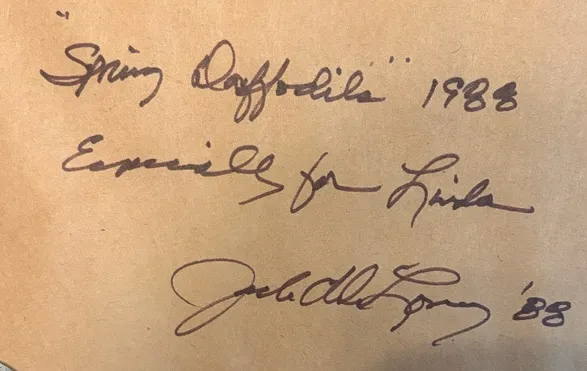 "Spring Daffodils" 1988
Especially for Linda
'88